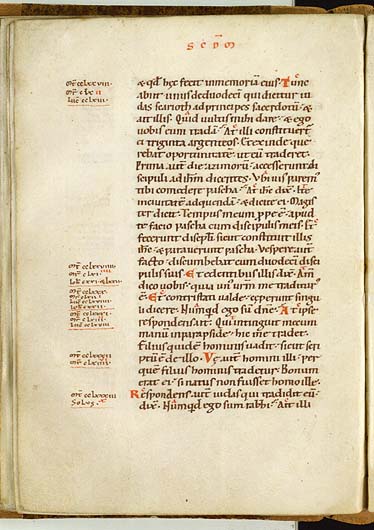 SCDM
& qđ hec fecit inmemoriā eius. Tunc
abiit unus deduodeci quidicitur iu
das scarioth adprincipes sacerdotū. &
ait illis. Quid uultis mihi dare. & ego
uobis eum tradā. At illi constituert̄
ei triginta argenteos. Et exinde que
rebat oportunitatē ut eū traderet.
Prima aut̄ die azimorū accesserunt di
scipuli ad ihm̄ dicentes. Vbi uis paremꝰ
tibi comedere pascha. At ihc̄ dix̄. Ite
inciuitatē adquendā. & dicite ei. Magis
ter dicit. Tempus meum ppe ē. apud
te facio pascha cum discipulis meis. Et
fecerunt discipli sicut constituit illis
ihc̄. & parauerunt pascha. Vespere aut̄
facto. discumbebat cum duodecim disci
pulis suis. Et edentibus illis dix̄. Am̄
dico uobis. quia unꝰ urm̄ me traditurꝰ
ē. Et contristati ualde. ceperunt singu
li dicere. Nūmqd ego sū dn̄e. At ipse
respondens ait. Qui intingit mecum
manū inparapside. hic me tradet.
Filius quidē hominis uadit. sicut scri
ptū ē de illo. Vę aut̄ homini illi. per
quē filius hominis tradetur. Bonum
erat ei. si natus non fuisset homo ille.
Respondens. aut̄ iudas qui tradidit eū.
dix̄. Nūmqd ego sum rabbi. Ait illi